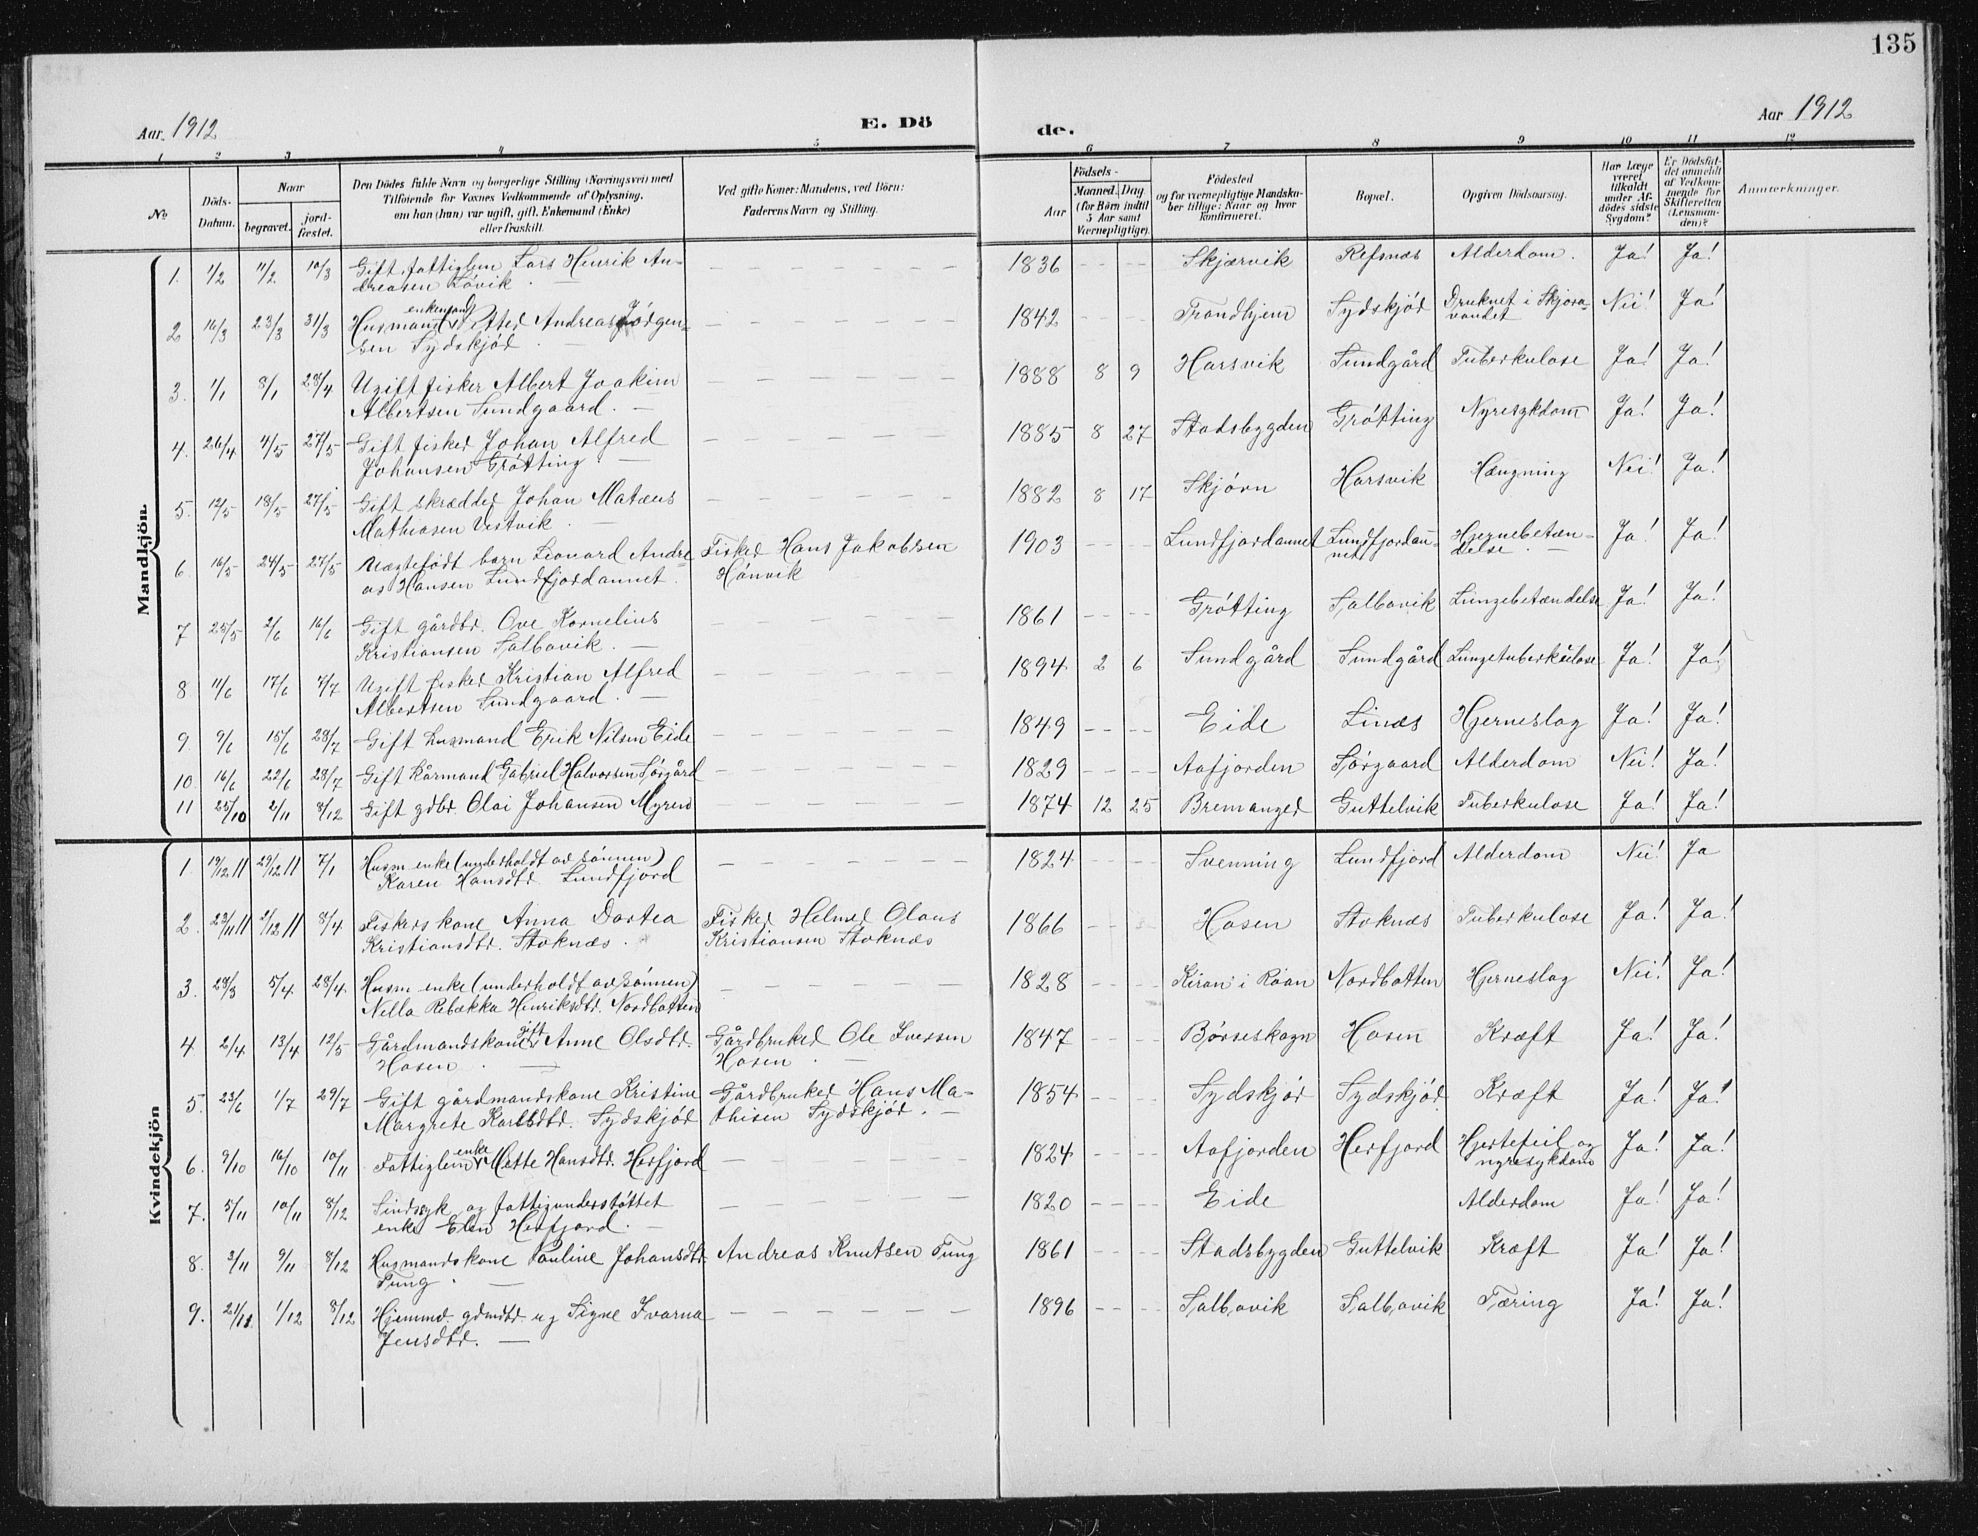 135
Aar 1912
E. Dö
de.
Aar 1912
1 2 3 4 5 6 7 8 9 10 11 12
№
Döds-
Datum.
Naar
begravet.
jord-
fæstet.
Den Dödes fulde Navn og borgerlige Stilling (Næringsvei) med
Tilföiende for Voxnes Vedkommende af Oplysning,
om han (hun) var ugift, gift, Enkemand (Enke)
eller fraskilt.
Ved gifte Koner: Mandens, ved Börn:
Faderens Navn og Stilling.
Födsels-
Aar
Maaned. Dag.
(for Börn indtil
5 Aar samt
Værnepligtige).
Födested
og for værnepligtige Mandska-
ber tillige: Naar og hvor
konfirmeret.
Bopæl.
Opgiven Dödsaarsag.
Har Læge
været
tilkaldt
under Af-
dödes sidste
Sygdom?
Er Dödsfal-
det anmeldt
af Vedkom-
mende for
Skifteretten
(Lensman-
den)?
Anmærkninger.
Mandkjön.
1. 1/2 11/2 10/3 Gift fattiglem Lars Henrik An-
dreasen Rövik. — 1836 Skjærvik Refsnes Alderdom. Ja! Ja!
enkemand
2 16/3 23/3 31/3 Husmand Petter Andreas Jörgen-
sen Sydskjör. — 1842 Trondhjem Sydskjör Druknet i Skjöra-
vandet Nei! Ja!
3. 1/1 8/1 28/4 Ugift fisker Albert Joakim
Albertsen Sundgaard. — 1888 8 9 Harsvik Sundgård Tuberkulose Ja! Ja!
4. 26/4 4/5 27/5 Gift fisker Johan Alfred
Johansen Gröttting. — 1885 8 27 Stadsbygden Grötting Nyresykdom Ja! Ja!
5. 12/5 18/5 27/5 Gift skrædder Johan Matæus
Mathiasen Vestvik. — 1882 8 17 Skjörn Harsvik Hængning Nei! Ja!
6. 16/5 24/5 27/5 Uægtefödt barn Leonard Andre-
as Hansen Lundfjordannet. Fisker Hans Jakobsen
Hönvik 1903 Lundfjordannet Lundfjordan-
net Hjernebetæn-
delse. — Ja! Ja!
7 25/5 2/6 16/6 Gift gårdbr. Ove Kornelius
Kristiansen Salbovik. — 1861 Grötting Salbovik Lungebetændelse Ja! Ja!
8 11/6 17/6 7/7 Ugift fisker Kristian Alfred
Albertsen Sundgaard. — 1894 2 6 Sundgård Sundgård Lungetuberkulose Ja! Ja!
9 9/6 15/6 28/7 Gift husmand Erik Nilsen Eide 1849 Eide Linæs Hjerneslag Ja! Ja!
10. 16/6 22/6 28/7 Gift kårmand Gabriel Halvorsen Sörgård 1829 Aafjorden Sörgaard Alderdom Nei! Ja!
11 25/10 2/11 8/12 Gift gdbr. Olai Johansen Myren 1874 12 25 Bremanger Guttelvik Tuberkulose Ja! Ja!
Kvindekjön
1 19/12 11 29/12 11 7/1 Husm. enke (underholdt av sönnen)
Karen Hansdtr. Lundfjord 1824 Svenning Lundfjord Alderdom Nei! Ja
2. 23/11 11 2/12 11 8/4 Fiskerskone Anna Dortea
Kristiansdtr. Stoknæs. Fisker Helmer Olaus
Kristiansen Stoknæs 1866 Hosen Stoknæs Tuberkulose Ja! Ja!
3. 28/3 5/4 28/4. Husm. enke (underholdt av sönnen)
Nella Rebækka Henriksdtr. Nordbotten 1828 Kiran i Roan Nordbotten Hjerneslag Nei! Ja!
gift
4 2/4 13/4 12/5 Gårdmandskone Anne Olsdtr.
Hosen. — Gårdbruker Ole Iversen
Hosen. — 1847 Börseskogn Hosen Kræft Ja! Ja!
5. 23/6 1/7 29/7 Gift gårdmandskone Kristine
Margrete Karlsdtr. Sydskjör Gårdbruker Hans Ma-
thisen Sydskjör. — 1854 Sydskjör Sydskjör Kræft Ja! Ja!
enke
6. 9/10 16/10 10/11 Fattiglem Mette Hansdtr. Herfjord 1824 Aafjorden Herfjord Hjertefeil og
nyresykdom Ja! Ja!
7. 5/11 10/11 8/12 Sindssyk og fattigunderstöttet
enke Elen Herfjord. — 1820 Eide Alderdom Ja! Ja!
8. 3/11 9/11 8/12 Husmandskone Pauline Johansdtr.
Tung. — Andreas Knutsen Tung 1861 Stadsbygden Guttelvik Kræft Ja! Ja!
9. 21/11 1/12 8/12 Hjemmev. gdmdtr. ug Signe Ivarna
Jensdtr. — 1896 Salbovik Salbovik Tæring Ja! Ja!